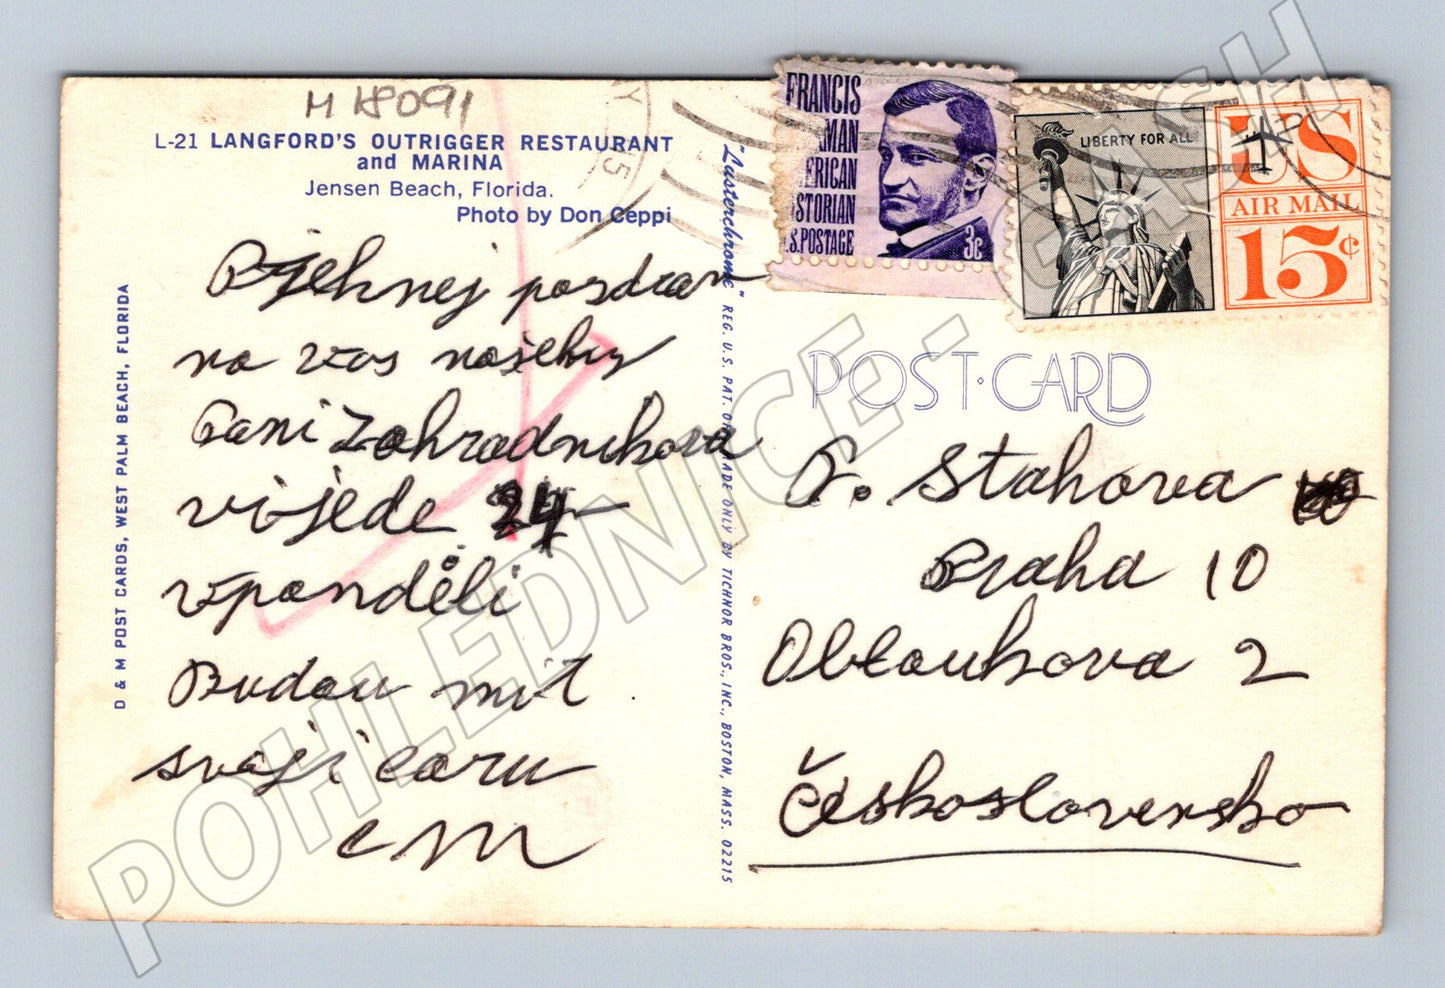 M 18091
L-21 LANGFORD'S OUTRIGGER RESTAURANT
and MARINA
Jensen Beach, Florida.
Photo by Don Ceppi
Pjehnej pozdrav
na Vas našehry
Pani Zahradnikova
vijede 24
v ponděli
Budou mit
svoji caru
D & M POST CARDS, WEST PALM BEACH, FLORIDA
"Lusterchrome" REG. U.S. PAT. OFF. MADE ONLY BY TICHNOR BROS., INC., BOSTON, MASS. 02215
FRANCIS
MAN
ERICAN
STORIAN
.S. POSTAGE
3c
LIBERTY FOR ALL
US
AIR MAIL
15c
POST·CARD
P. Stahova
Praha 10
Obloukova 2
Československo
POHLEDNICE - CASH